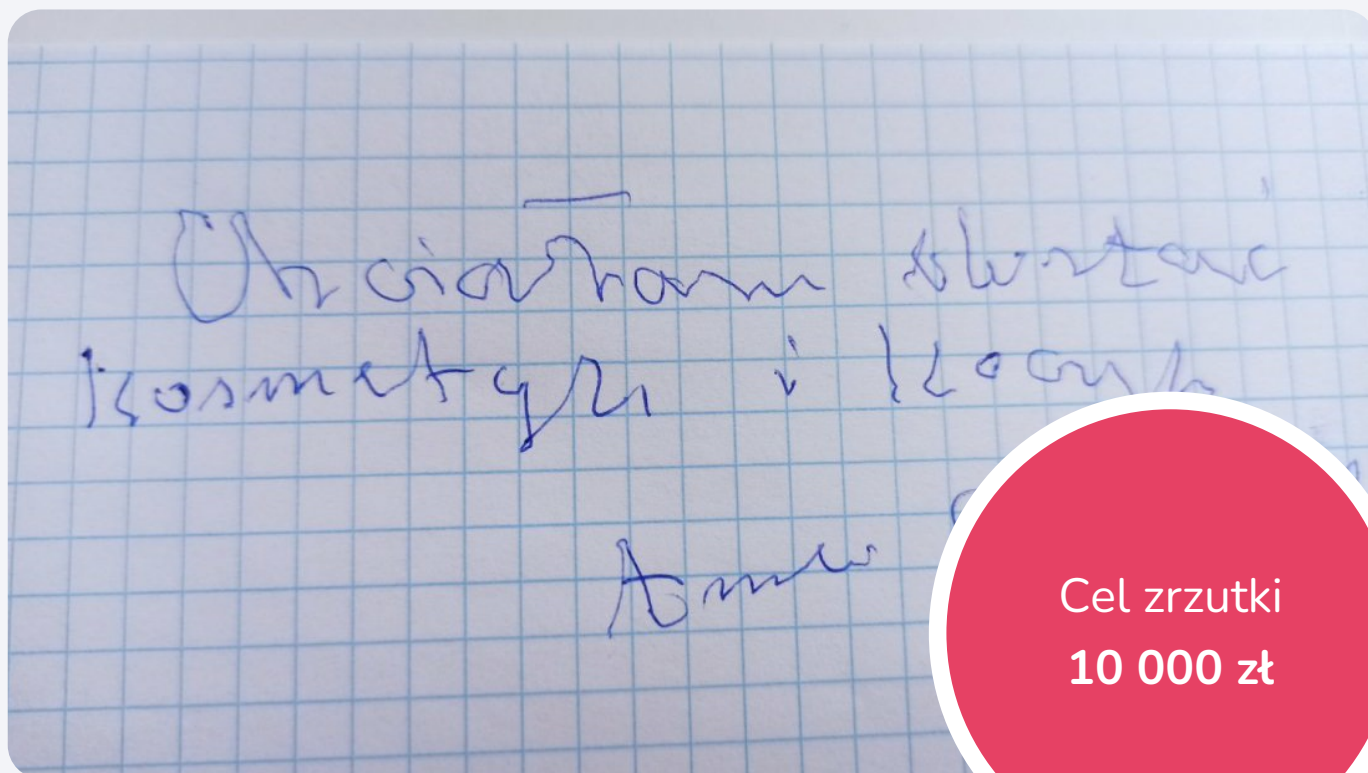 Chciałam dostać
kosmetyki i kocyk
Cel zrzutki
10 000 zł